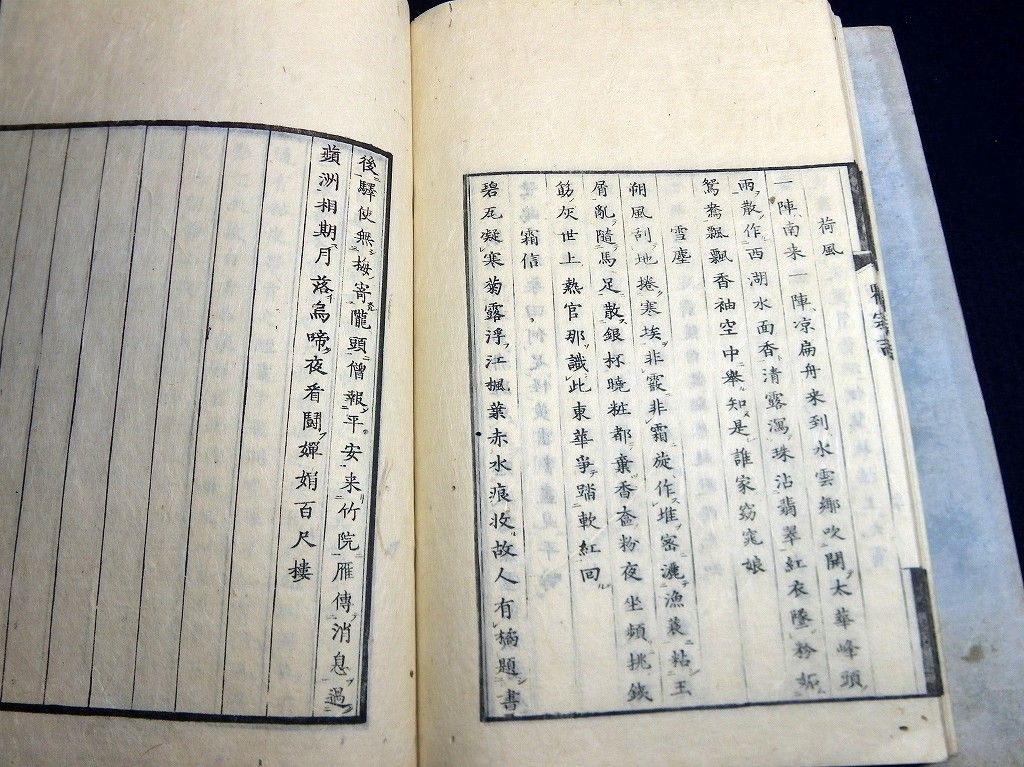 荷風
一陣南来一陣凉扁舟来到水雲郷吹開太華峰頭
雨散作西湖水面香清露瀉珠沾翡翠紅衣墜粉妬
鴛鴦飄飄香袖空中舉知是誰家窈窕娘
雪塵
朔風刮地捲寒埃非霰非霜旋作堆密漉漁蓑粘玉
屑亂隨馬足散銀杯曉粧都棄香奩粉夜坐頻挑鋏
筯灰世上熱官那識此東華爭踏軟紅回
霜信
碧瓦凝寒菊露浮江楓葉赤水痕收故人有橘題書
後驛使無梅寄隴頭僧報平安来竹院雁傳消息過
蘋洲相期月落烏啼夜看鬪嬋娟百尺樓